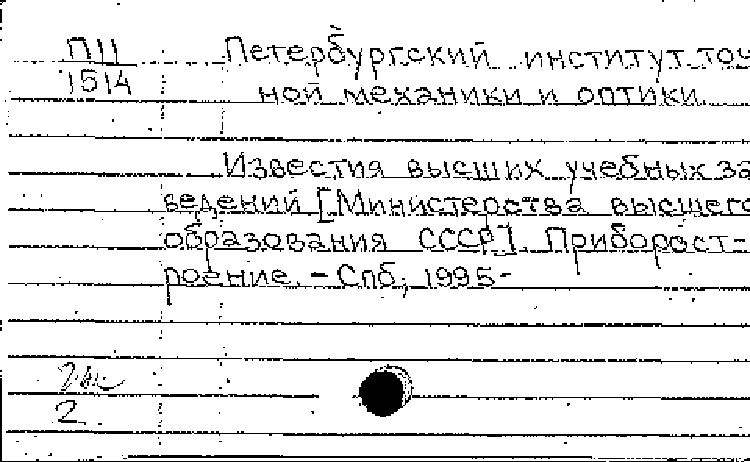 П11
1514
Петербургский институт точ
ной механики и оптики.
Известия высших учебных за
ведений [Министерства высшего
образования СССР]. Приборост-
роение. - Спб, 1995-
2